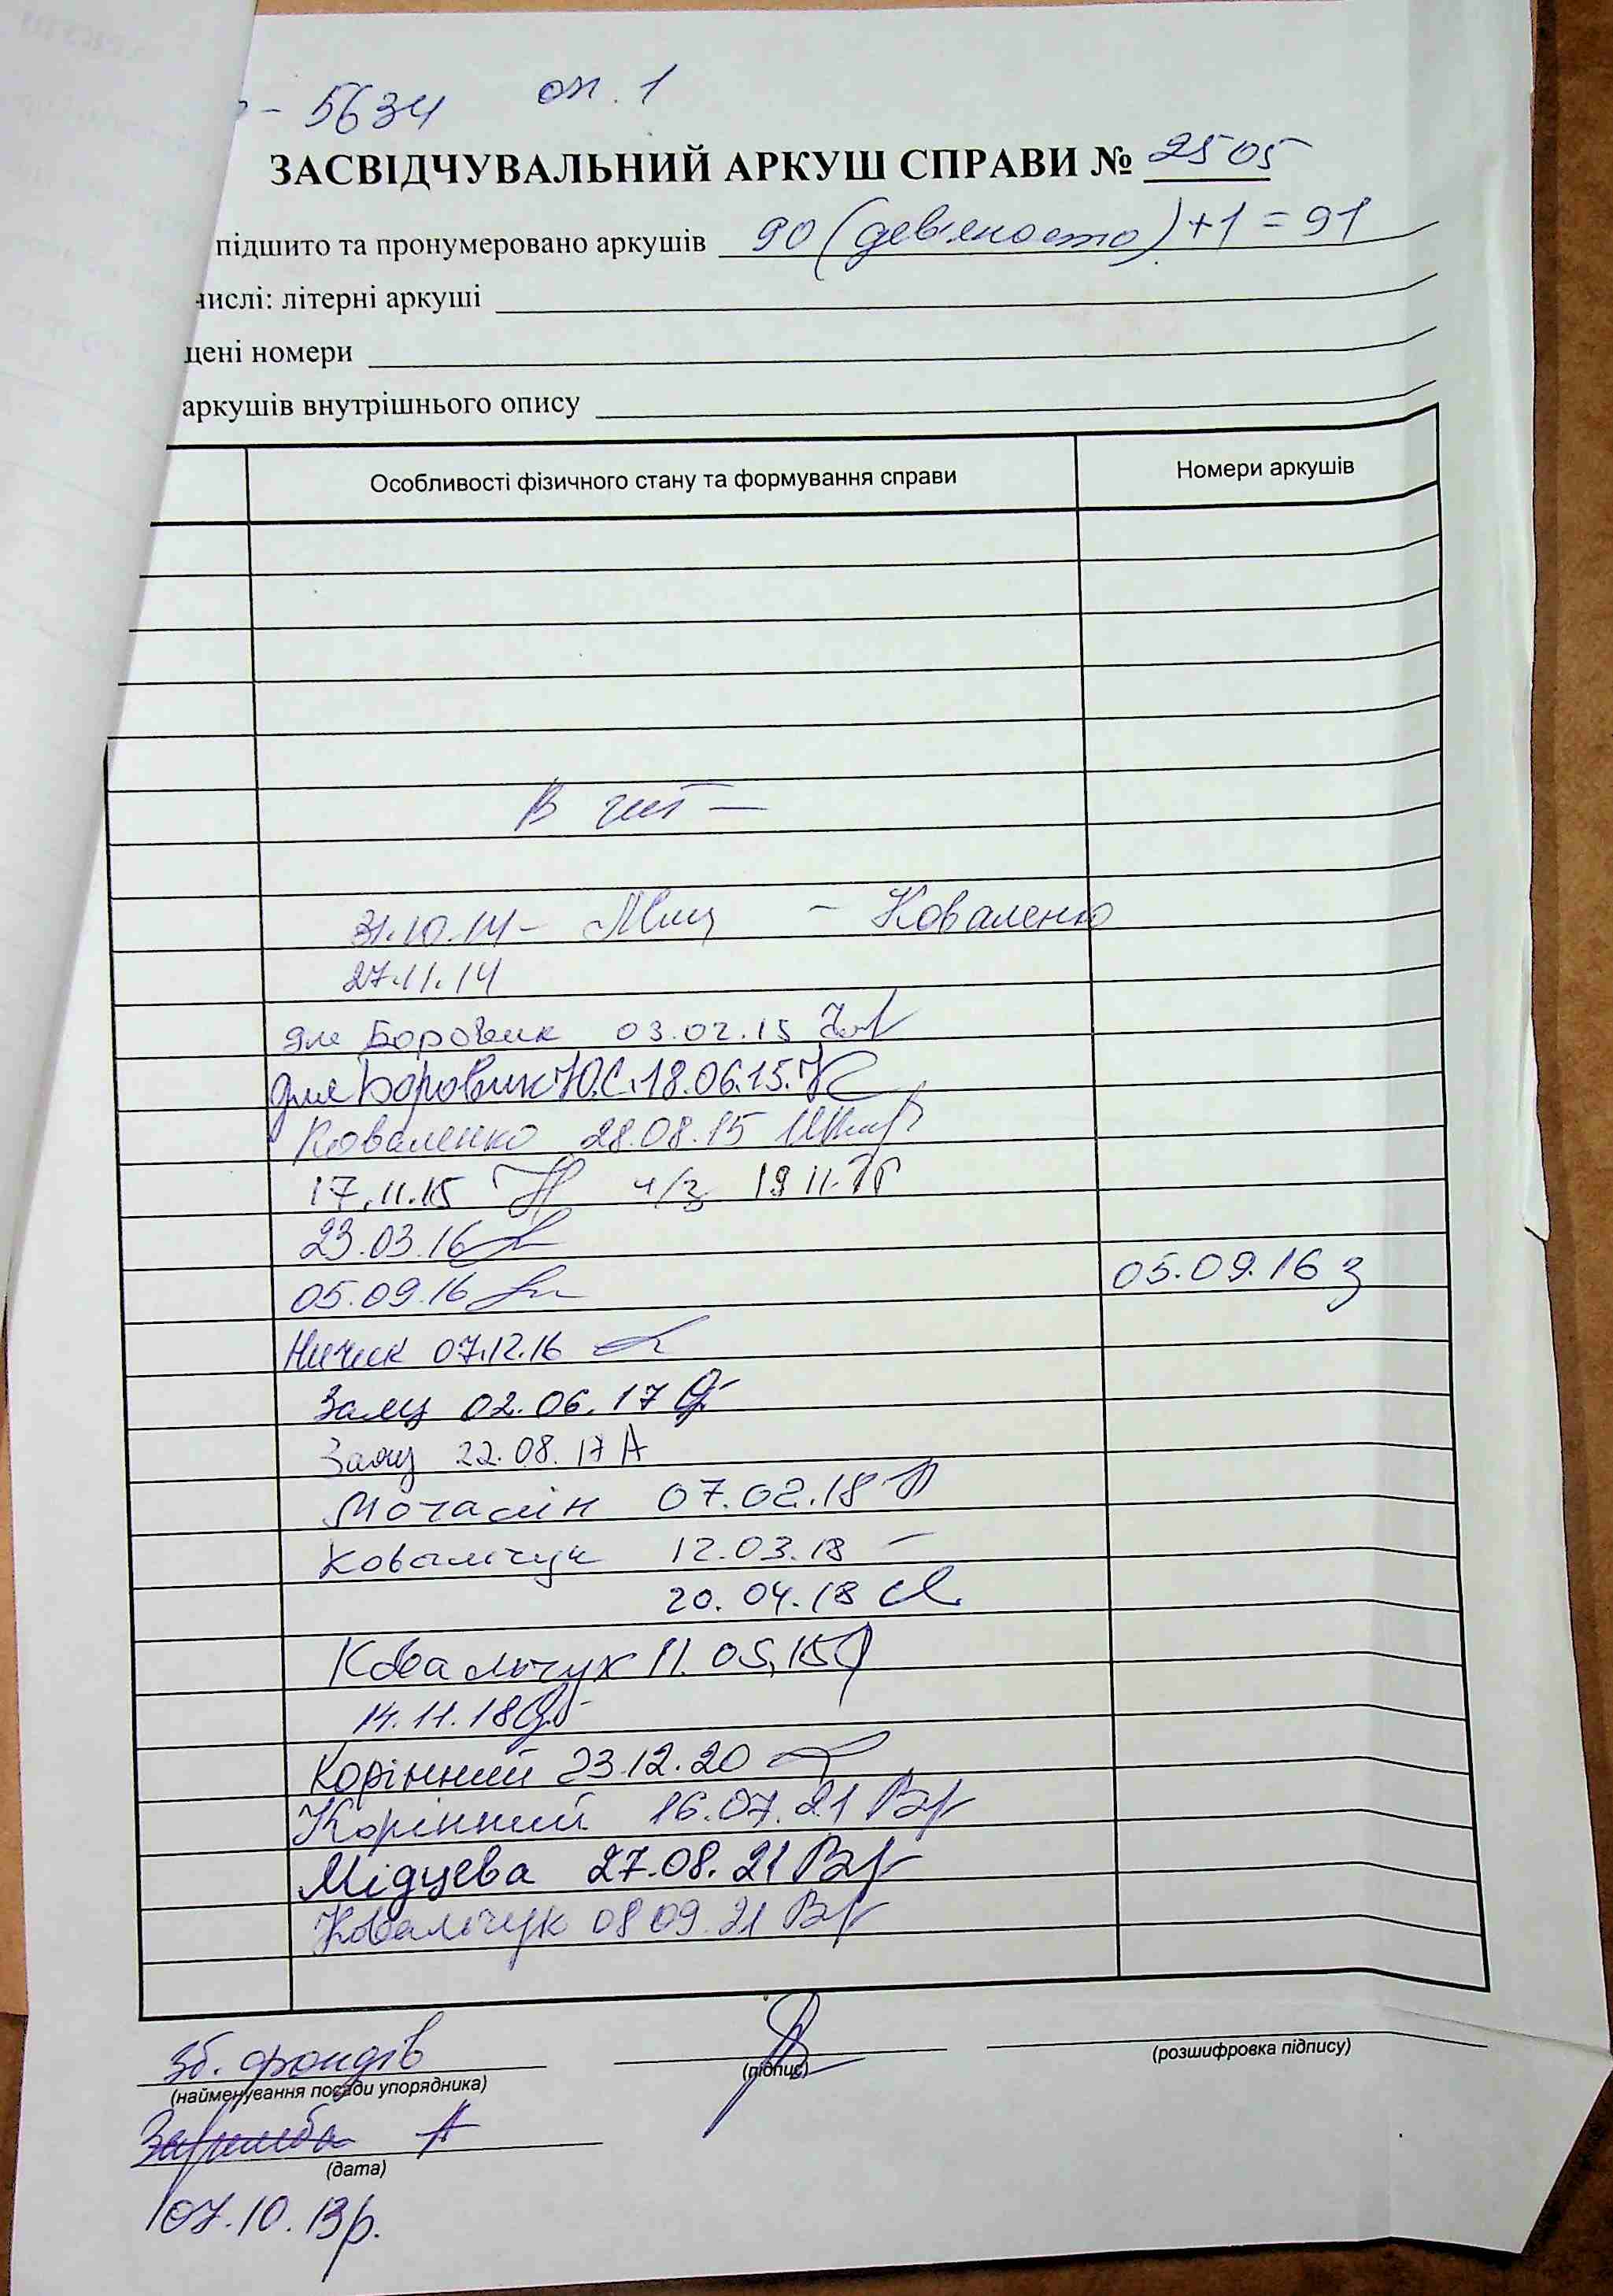 - 5634 оп. 1
ЗАСВІДЧУВАЛЬНИЙ АРКУШ СПРАВИ № 2505
підшито та пронумеровано аркушів 90 (дев'яносто) + 1 = 91
числі: літерні аркуші
щені номери
аркушів внутрішнього опису
Особливості фізичного стану та формування справи Номери аркушів
В
31.10.14 - - Коваленко
27.11.14
для Боровик 03.02.15
для Боровик Ю.С. 18.06.15.
Коваленко 28.08.15
17.11.15 ч/з 19 11.
23.03.16
05.09.16 05.09.16 з
Ничик 07.12.16
02.06.17
22.08.17 А
07.02.18
Ковальчук 12.03.18
20.04.18
Ковальчук 11.05.
14.11.18
Корінний 23.12.20
Корінний 16.07.21
Мідцева 27.08.21
Ковальчук 08 09.21
зб. фондів
(найменування посади упорядника) (підпис) (розшифровка підпису)
А
(дата)
07.10.13р.